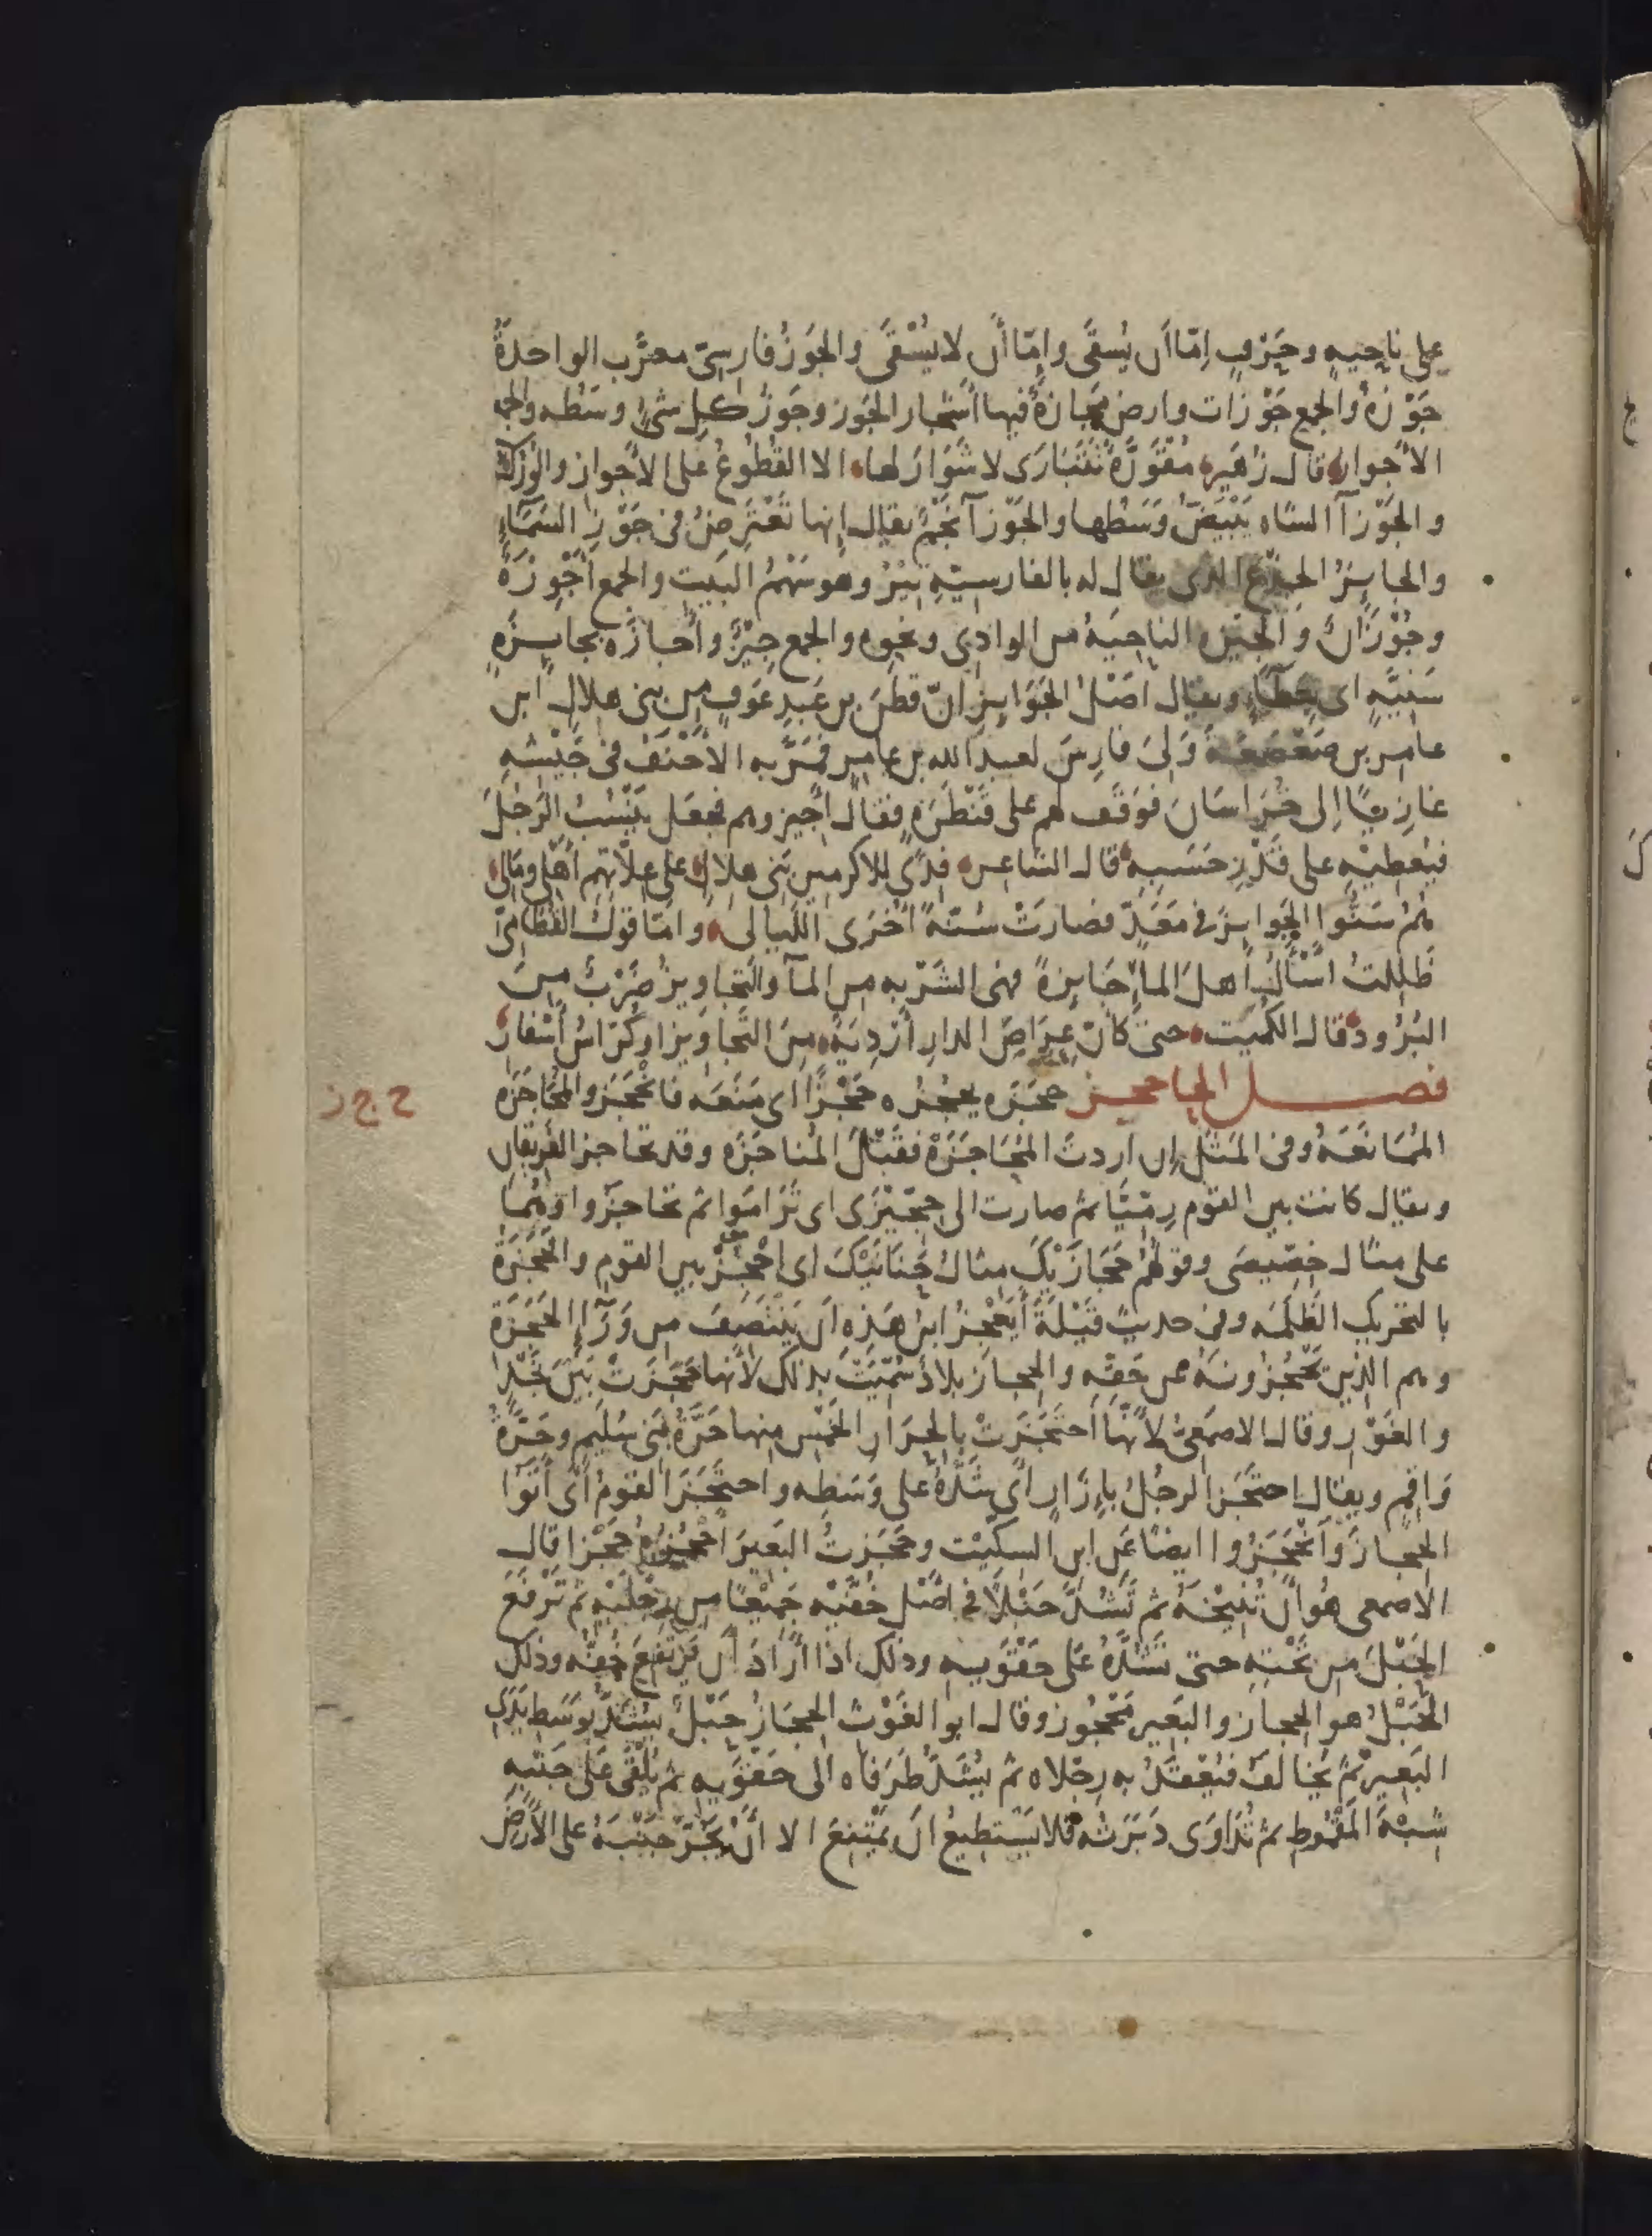 على ناحِيهٍ وحَرْفٍ اِمّا أَن يُسقَى وإِمّا أَن لا يُسْقَى والجَوزُ فارِسىّ معرّب الواحدَةُ
جَوْزَةٌ والجمع جَوْزَات وارض مَجَازَةٌ فيها اَشجار الجَوز وجَوزُ كلِ شئٍ وسَطه والجمع
الأَجواز قال زُهَير مُقْوَرَّةً تَتَبَارَى لا شَوَارَ لها الا القُطُوعُ عَلى الأَجواز والوُرُكُ
والجَوْزآ الشاه يَبْيَضّ وَسَطها والجَوْزآ نَجْمٌ يقال إِنها تَعْتَرِضُ فى جَوْزِ السَمَآءِ
والجايِزُ الجِذْع الذى يقال له بالفارسيّهِ تِيْرُ وهو سَهْمُ البَيت والجمع أَجْوِزَةٌ
وجُوْزَانٌ والجِيْزه الناحِيَهُ من الوادِى ونحوِهِ والجمع جِيَزٌ وأَجازَه بجايِزَهٍ
سَنِيَّهٍ اى بعطآءٍ ويقال اَصْلُ الجَوَايِزِ انّ قَطَنَ بن عَبدِ عَوفٍ مِن بنى هلالِ ابن
عامِر بن صَعْصَعَهَ وَلِىَ فارِسَ لعبدِ الله بن عامِرٍ فمَرّ به الأَحْنَفُ فى جَيْشهِ
غازِيًا إِلى خُرَاسَانَ فوَقَف لهم على قَنْطَرَهٍ فقال أَجِيزوهم فجعَل يَنْسُبُ الرَجُلَ
فيُعْطِيْهِ على قَدْرِ حَسَبِهِ قال الشاعِر فِدًى للاكرمين بَنى هلالٍ على عِلّاتهم أَهلى ومَالى
هُمُ سَنُّوا الجَوايِزَ فى مَعَدّ فصارَتْ سُنّةً اُخْرَى اللَيالى وامّا قولُ القُطَامِىّ
ظَلِلتُ اَسْأَلُ أَهلَ المآءِ جَايِزَةً فهى الشَرْبه من المآ والتجاوِيزُ ضَرْبٌ مِنَ
البُرُودِ قال الكُمَيت حتى كانّ عِرَاصَ الدارِ أَرْدِيَهٌ مِنَ التَجاوِيزِ او كُرّاسُ أَسْفارِ
فصـل الحا حجز حَجَزَه يحجُزُه حَجْزًا اى مَنَعَه فانْحَجَز والمُحَاجَزَه
المُمَانَعَهُ وفى المَثَل إِن اردتَ المُحَاجَزَةَ فقَبْلَ المُناجَزَه وقد تحاجز الفَرِيقان
ويقال كانت بين القوم رِمِّيَّا ثم صارت الى حِجِّيْزَى اى تَرَامَوا ثم تحاجزوا وهُما
على مثال خِصِّيصَى وقولهُم حَجَازَيْكَ مثالُ حَنَانَيْكَ اى اُحْجُزْ بين القوم والحَجَزَةُ
بالتحريك الظَلَمَه وفى حديث قَيْلَةَ أَيَعْجِزُ ابنُ هَذِهِ اَن يَنْتَصِفَ مِن وَرَآءِ الحَجَزَةِ
وهم الذين يَحْجُزُونَهُ عن حَقِّهِ والحِجاز بلادٌ سُمِّيَتْ بذلك لأَنها حَجَزَتْ بَيْنَ نَجْدٍ
والغَوْرِ وقال الاصمَعىُّ لأَنَّها اَحتَجَزَتْ بِالحِرَارِ الخَمْسِ مِنها حَرّةُ بنى سُلَيمٍ وحَرّةُ
وَاقِم ويقال احتَجَز الرجُلُ بإِزَارٍ أَى شَدَّهُ على وَسَطِهِ واحتَجَزَ القومُ أَى أَتَوا
الحِجازَ وانْحَجَزُوا ايضًا عن ابن السِكِّيْت وحَجَزتُ البَعِيرَ أَحْجُزُهُ حَجْزا قال
الأَصمعى هُو أَن تُنِيْخَهُ ثم تَشُدَّ حَبْلًا فى اصْل خُفّيْه جَمِيْعًا من رِجْلَيْهِ ثم تَرفَعَ
الحَبْلَ من تَحْتِهِ حتى تَشُدَّهُ على حَقْوَيهِ وذلك اذا أَرادَ اَن يَرتَفِعَ خُفّه وذلك
الحَبْلُ هو الحِجاز والبَعِير مَحْجُوز وقال ابو الغَوْث الحِجَازُ حَبْلٌ يُشَدُّ بوَسَطِ يَدَىِ
البَعِيرِ ثُمّ يُخَالَف فيُعْقَدُ به رِجْلاه ثم يُشَدُّ طَرَفاه الى حَقْوَيهِ ثم يُلْقَى عَلى جَنْبِهِ
شِبْهَ المَقْمُوطِ ثم تُدَاوَى دَبَرَتُه فلا يَستطيعُ اَن يَمتَنِعَ الا اَنْ يَجُرّ جَنْبَهُ على الأَرضِ
ح ج ز